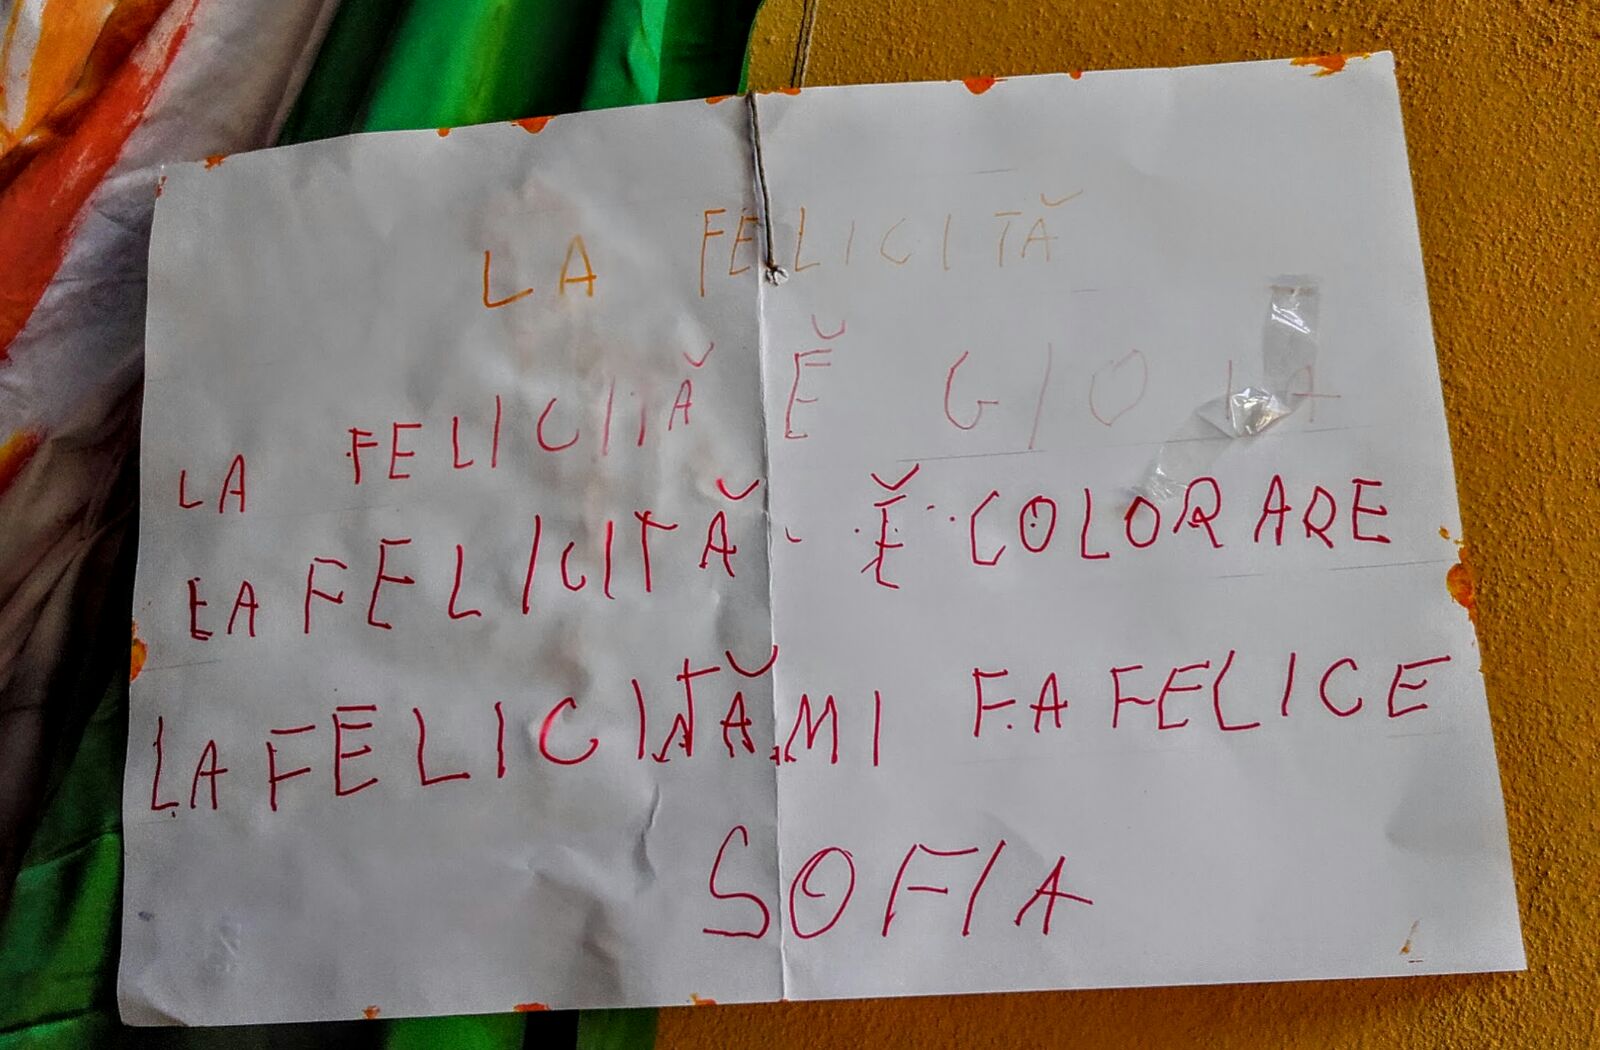 LA FELICITĂ
LA FELICITĂ Ĕ GIOIA
LA FELICITĂ Ĕ COLORARE
LA FELICITĂ MI FA FELICE
SOFIA